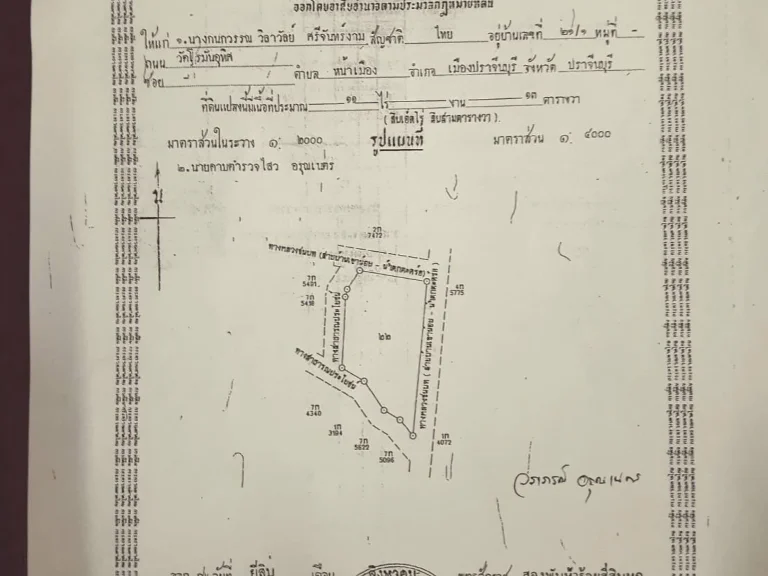 ออกโดยอาศัยอำนาจตามประมวลกฎหมายที่ดิน
ให้แก่ ๑.นางกนกวรรณ วิลาวัลย์ ศรีจันทร์งาม สัญชาติ ไทย อยู่บ้านเลขที่ ๒๑/๑ หมู่ที่ -
ถนน
ซอย ตำบล หน้าเมือง อำเภอ เมืองปราจีนบุรี จังหวัด ปราจีนบุรี
ที่ดินแปลงนี้มีเนื้อที่ประมาณ ๑๑ ไร่ งาน ๑๓ ตารางวา
( สิบเอ็ดไร่ สิบสามตารางวา )
มาตราส่วนในระวาง ๑: ๒๐๐๐ รูปแผนที่ มาตราส่วน ๑: ๔๐๐๐
๒.นายดาบตำรวจไสว อรุณเนตร
น
2ก
7472
ทางหลวงชนบท (สายบ้านเขาน้อย - น้ำตกตะคร้อ)
7ก
5401
7ก
5438
4ก
5775
ทางสาธารณประโยชน์
๒๒
ทางหลวงชนบท
ทางสาธารณประโยชน์
7ก
4340
1ก
3194
7ก
5622
7ก
5096
1ก
4072
วราภรณ์ อรุณเนตร
ยี่สิบ เดือน สิงหาคม